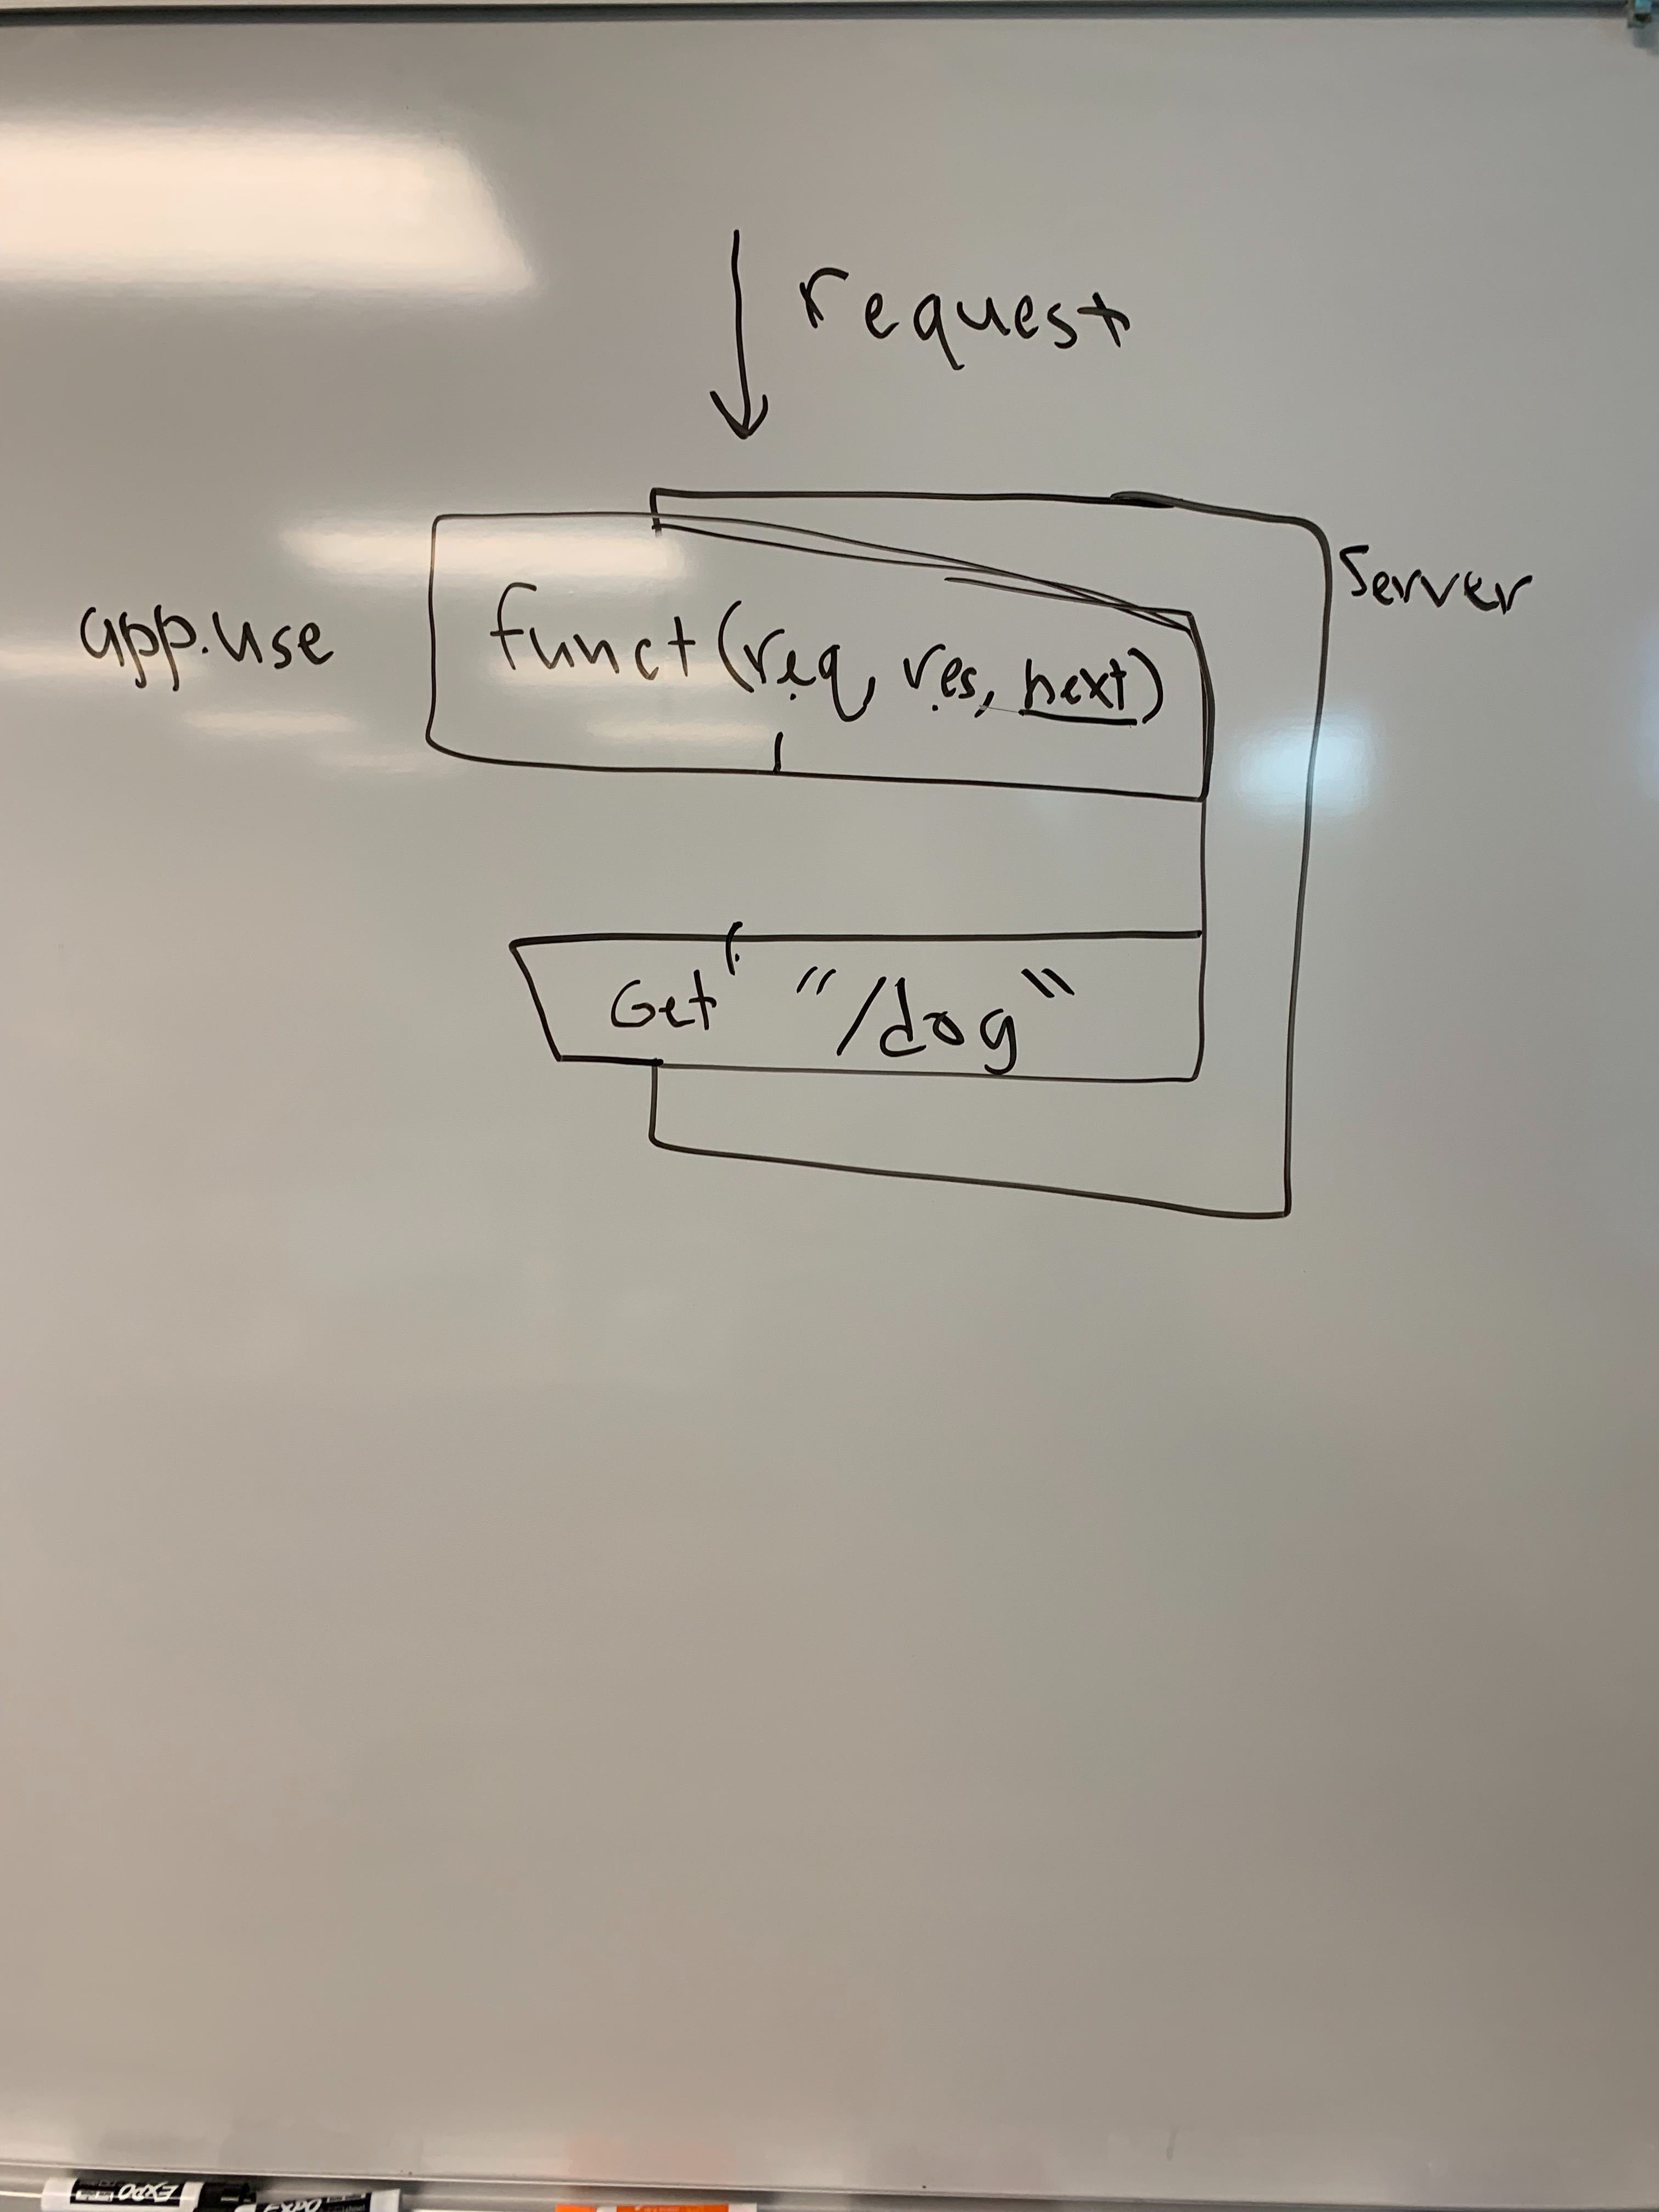 request
Server
app.use
funct(req, res, next)
Get "/dog"
EXPO
EXPO